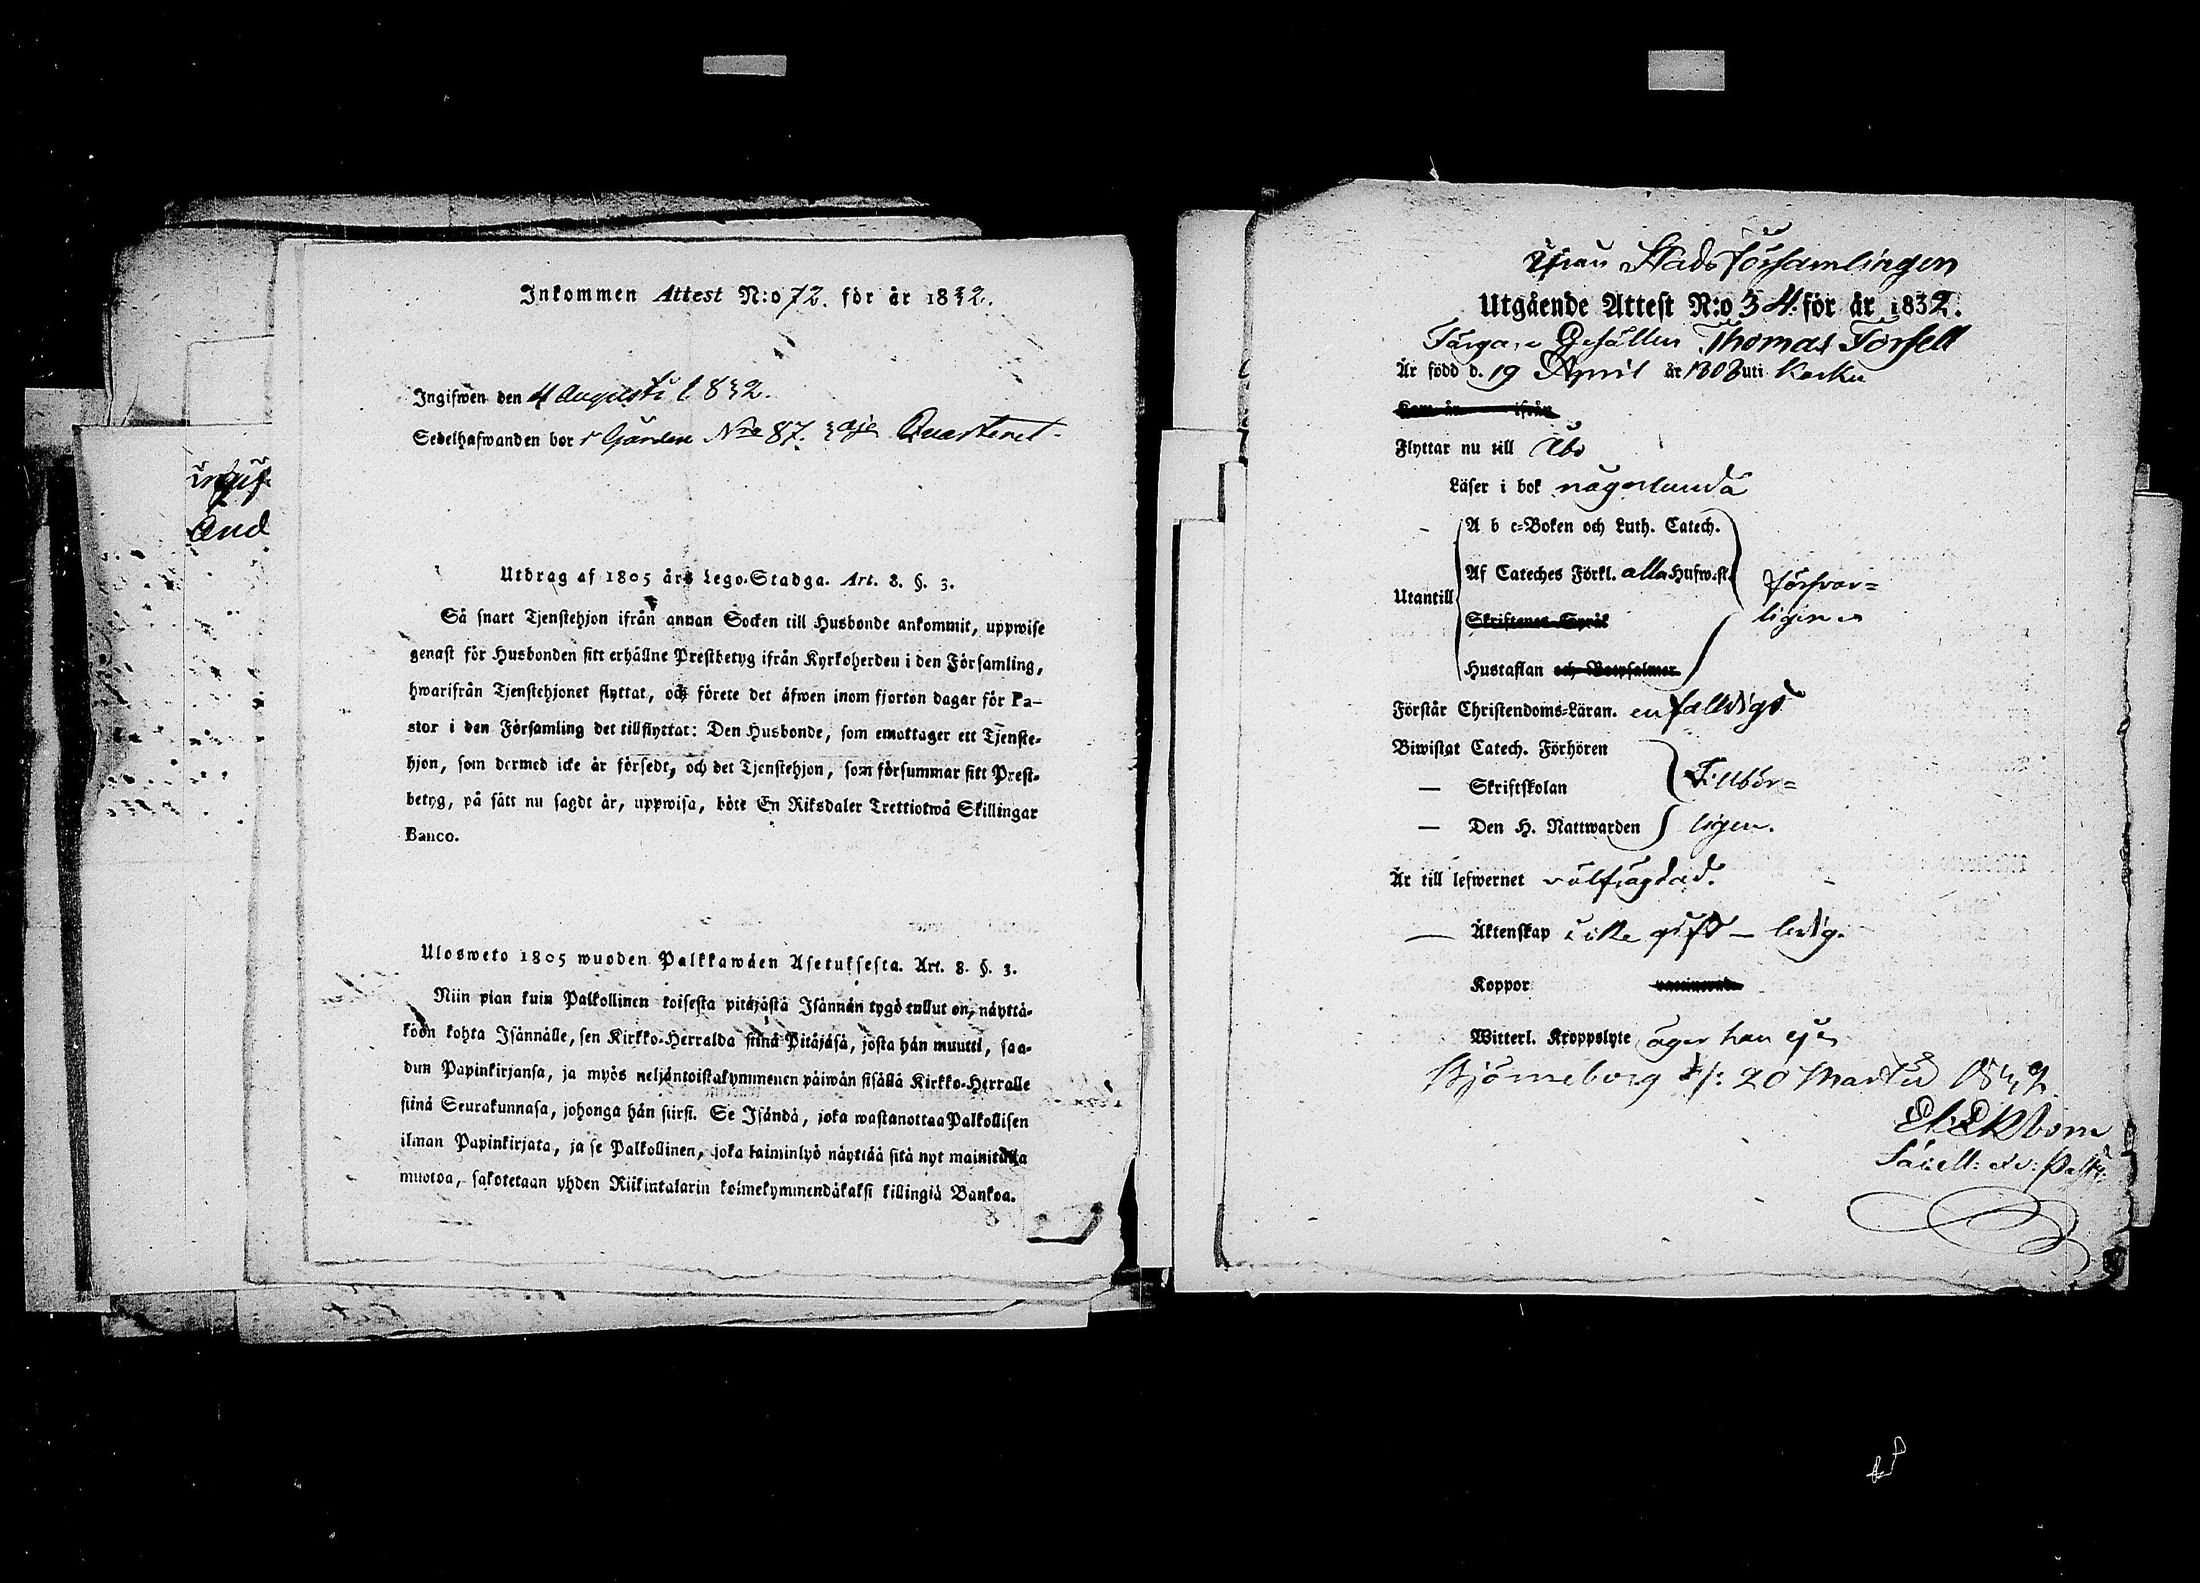 Inkommen Attest N:o 72. för år 1832.
Ingifwen den 4 Augusti 1832.
Sedelhafwanden bor i Gården Nro 87. 3dje Quarteret.
ingif
And
Utdrag af 1805 års Lego-Stadga. Art. 8. §. 3.
Så snart Tjenstehjon ifrån annan Socken till Husbonde ankommit, uppwise
genast för Husbonden sitt erhållne Prestbetyg ifrån Kyrkoherden i den Församling,
hwarifrån Tjenstehjonet flyttat, och förete det äfwen inom fjorton dagar för Pa-
stor i den Församling det tillflyttat: Den Husbonde, som emottager ett Tjenste-
hjon, som dermed icke är försedt, och det Tjenstehjon, som försummar sitt Prest-
betyg, på sätt nu sagdt är, uppwisa, böte En Riksdaler Trettiotwå Skillingar
Banco.
Ulosweto 1805 wuoden Palkkawäen Asetuksesta. Art. 8. §. 3.
Niin pian kuin Palkollinen toisesta pitäjästä Isännän tygö tullut on, näyttä-
köön kohta Isännälle, sen Kirkko-Herralda siinä Pitäjäsä, josta hän muutti, saa-
dun Papinkirjansa, ja myös neljäntoistakymmenen päiwän sisällä Kirkko-Herralle
siinä Seurakunnasa, johonga hän siirsi. Se Isändä, joka wastanottaa Palkollisen
ilman Papinkirjata, ja se Palkollinen, joka laiminlyö näyttää sitä nyt mainitulla
muotoa, sakotetaan yhden Riikintalarin kolmekymmendäkaksi killingiä Bankoa.
Ifrån Stadsförsamlingen
Utgående Attest N:o 34. för år 1832.
Färgare Gesällen Thomas Forsell
Är född d. 19 April år 1808 uti Karku
Kom år ifrån
Flyttar nu till Åbo
Läser i bok någorlunda
A b c-Boken och Luth. Catech.
Af Cateches Förkl. alla Hufw.st. försvar=
Utantill
Skriftenes Språk ligen
Hustaflan och Botpsalmer
Förstår Christendoms-Läran. enfalldigt
Biwistat Catech. Förhören
— Skriftskolan Tillbör=
— Den H. Nattwarden ligen.
Är till lefwernet välfrägdad.
— Äktenskap icke gift – ledig.
Koppor vaccinerad
Witterl. Kroppslyte äger han ej
Björneborg d/: 20 Martii 1832.
Ekbom